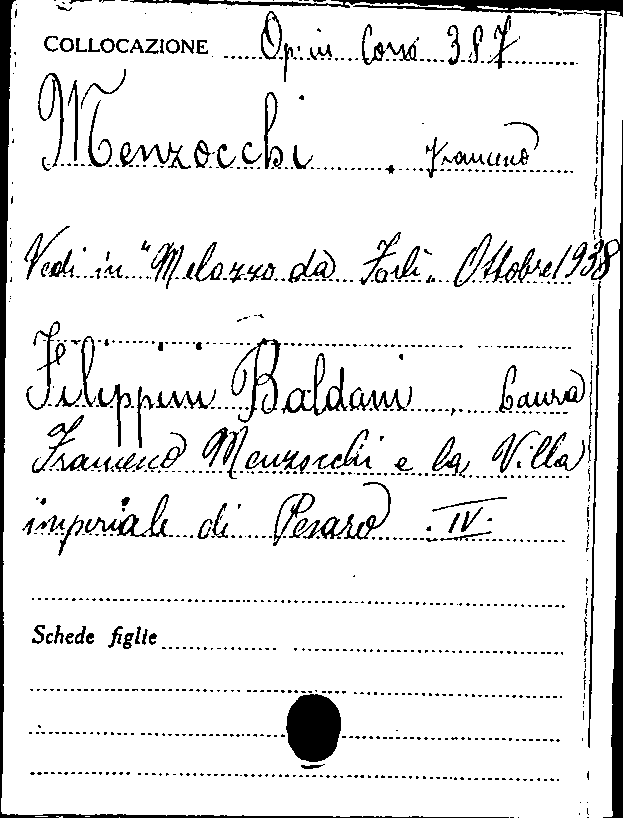 COLLOCAZIONE Op. in Corso 387
Menzocchi . Francesco
Vedi in "Melozzo da Forlì" Ottobre 1938
Filippini Baldani, Laura
Francesco Menzocchi e la Villa
imperiale di Pesaro . IV.
Schede figlie